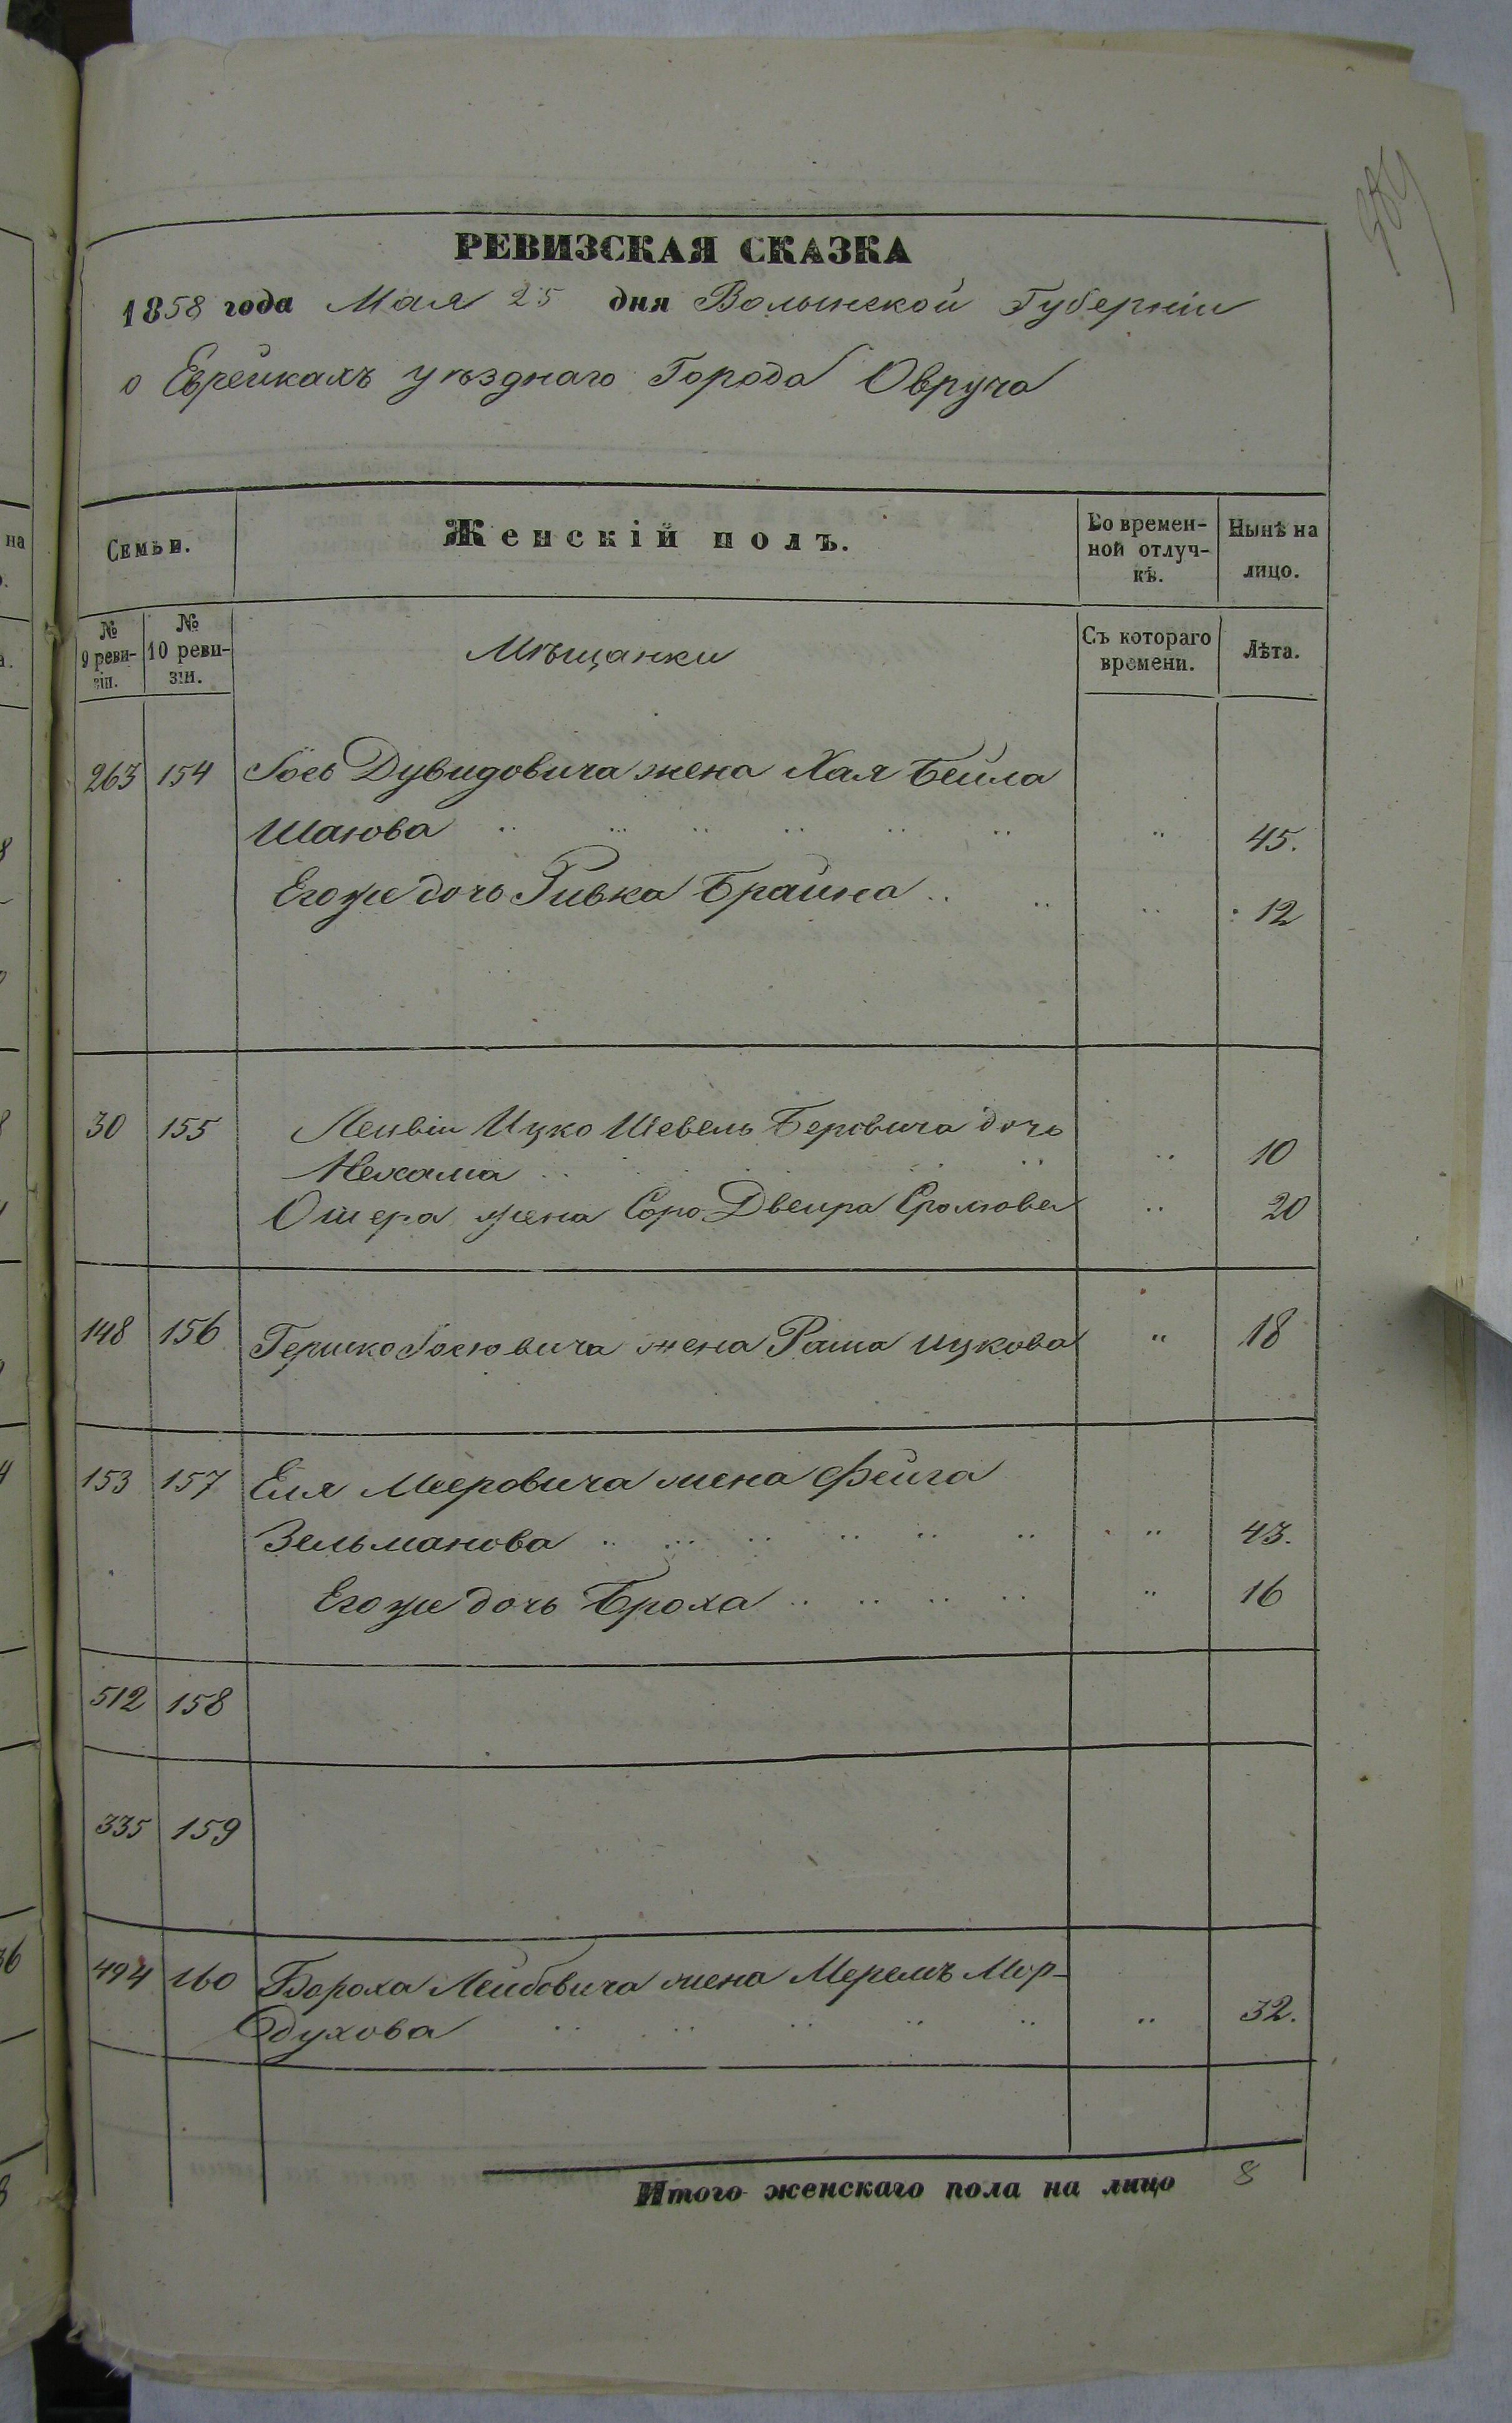 РЕВИЗСКАЯ СКАЗКА
1858 года Мая 25 дня Волынской Губерніи
о Еврейкахъ уѣзднаго Города Овруча
Семьи. Женскій полъ. Во времен- Нынѣ на
ной отлуч-
кѣ. лицо.
№ № Мѣщанки Съ котораго Лѣта.
9 реви- 10 реви- времени.
зіи. зіи.
263 154 Іось Дувидовича жена Хая Бейла
Шаюва " 45.
Его же дочь Ривка Брайна " 12
30 155 Ицко Шевель Беровича дочь
Нехама " 10
Ошера жена Соро Двейра Сролюва " 20
148 156 Гершко Іосювича жена Раша Ицкова " 18
153 157 Еля Мееровича жена Фейга
Зельманова " 43.
Его же дочь Броха " 16
512 158
335 159
494 160 Бороха Лейбовича жена Меремъ Мор-
духова " 32.
Итого женскаго пола на лицо 8